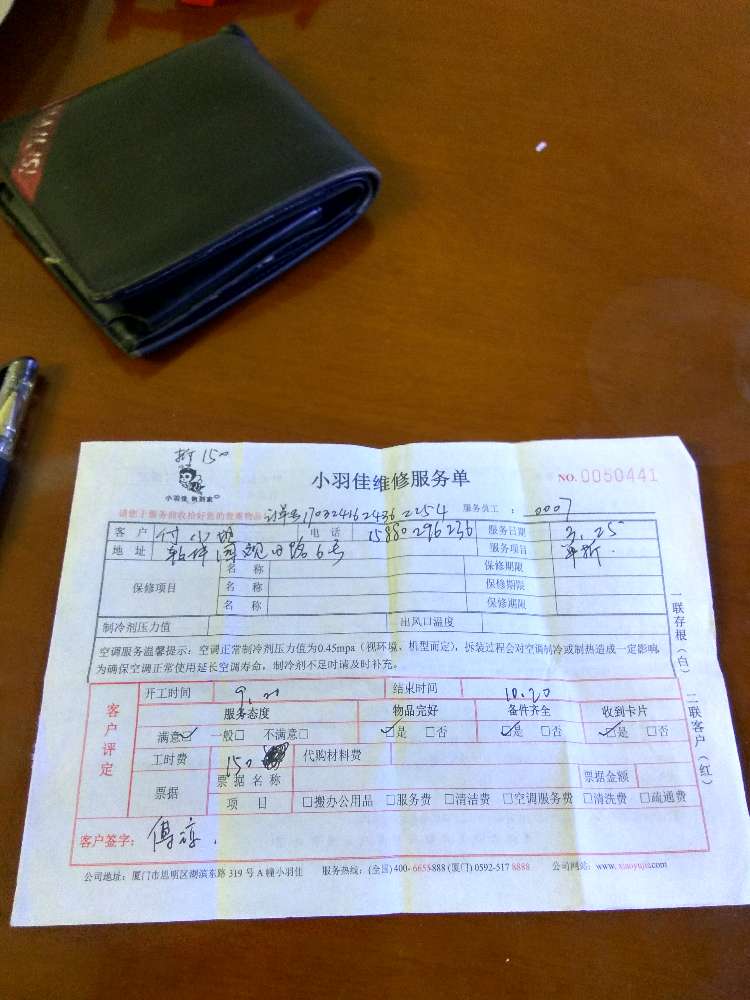 150
小羽佳维修服务单
NO.0050441
小羽佳 救到家
请您于服务前收拾好您的贵重物品 订单号170324162436 2254 服务员工: 0007
客户 付小姐 电话 15880296236 服务日期 3.25
地址 软件园观日路6号 服务项目 单拆.
保修项目 名称 保修期限
名称 保修期限
名称 保修期限
制冷剂压力值 出风口温度
空调服务温馨提示:空调正常制冷剂压力值为0.45mpa(视环境、机型而定),拆装过程会对空调制冷或制热造成一定影响,
为确保空调正常使用延长空调寿命,制冷剂不足时请及时补充。
一联存根(白) 二联客户(红)
客户评定
开工时间 9.20 结束时间 10.20
服务态度 物品完好 备件齐全 收到卡片
满意☑ 一般□ 不满意□ ☑是 □否 ☑是 □否 ☑是 □否
工时费 150 代购材料费
票据 票据名称 票据金额
项目 □搬办公用品 □服务费 □清洁费 □空调服务费 □清洗费 □疏通费
客户签字:
公司地址:厦门市思明区湖滨东路 319 号 A 幢小羽佳 服务热线:(全国)400-6655888 (厦门) 0592-517 8888 公司网站:www.xiaoyujia.com